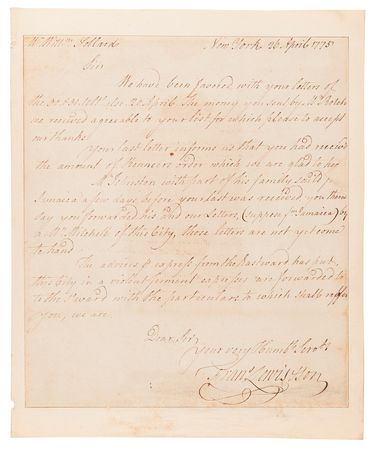 Mr. Willm. Pollard New York 26 April 1775
Sir
We have been favored with your letters of
the & 22 April. The money you sent by Mr.
we received agreeable to your list for which please to accept
our thanks.
Your last letter informs us that you had received
the amount of order which we are glad to hear
Mr. Johnston with part of his family sail'd for
Jamaica a few days before your last was received you therein
say you forwarded his and our Letters, (suppose fm. Jamaica) by
a Mr. Mitchell of this City, those letters are not yet come
to hand
The advices & express from the Eastward has put
this City in a violent ferment expresses are forwarded to
to the So. ward with the particulars to which shall reffer
you, we are
Dear Sir
Your very Humb. Servts.
Frans. Lewis & Son